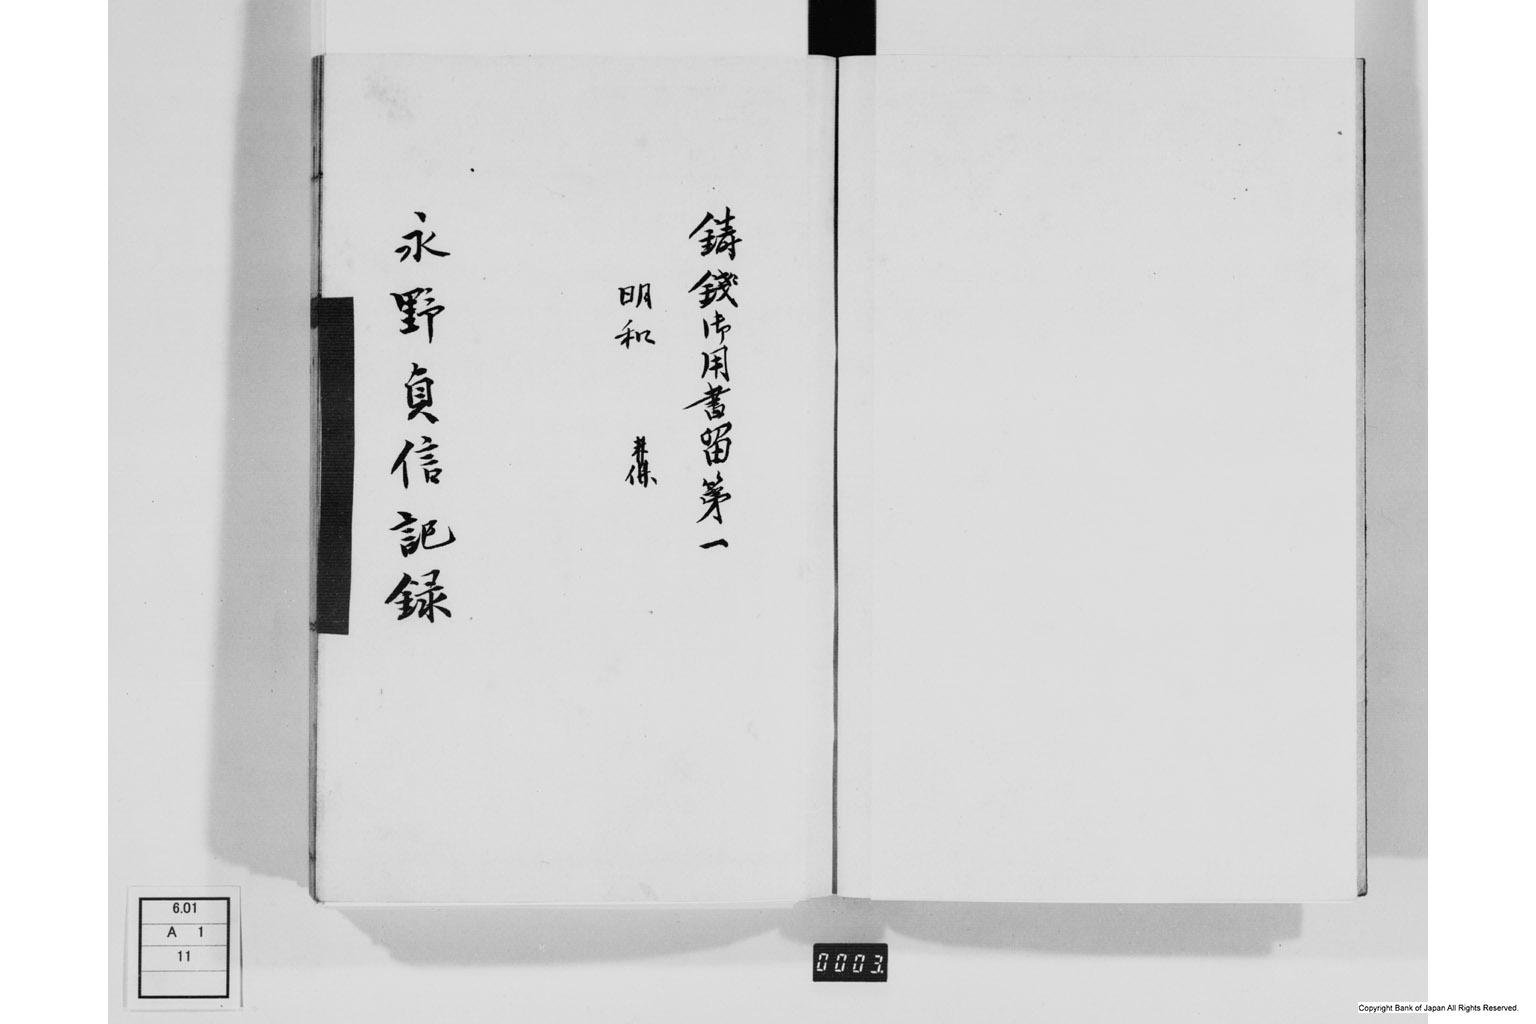 鋳錢御用書留第一
明和
永野貞信記録
6.01
A 1
11
0003.
Copyright Bank of Japan All Rights Reserved.